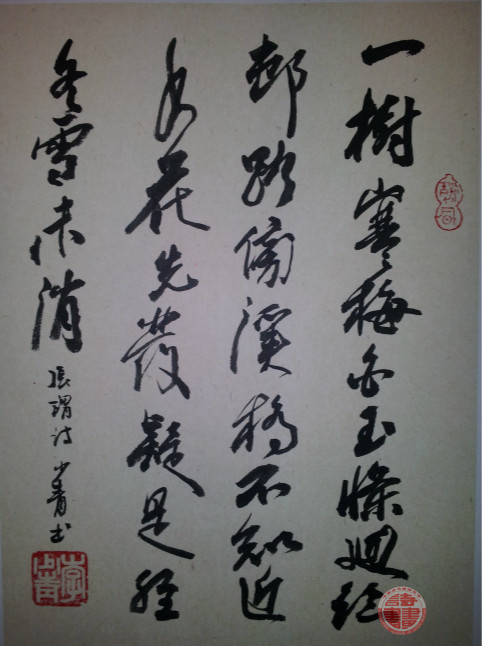 一樹寒梅白玉條迴臨
邨路傍溪橋不知近
水花先發疑是經
冬雪未消
張謂詩 少青书
李少青